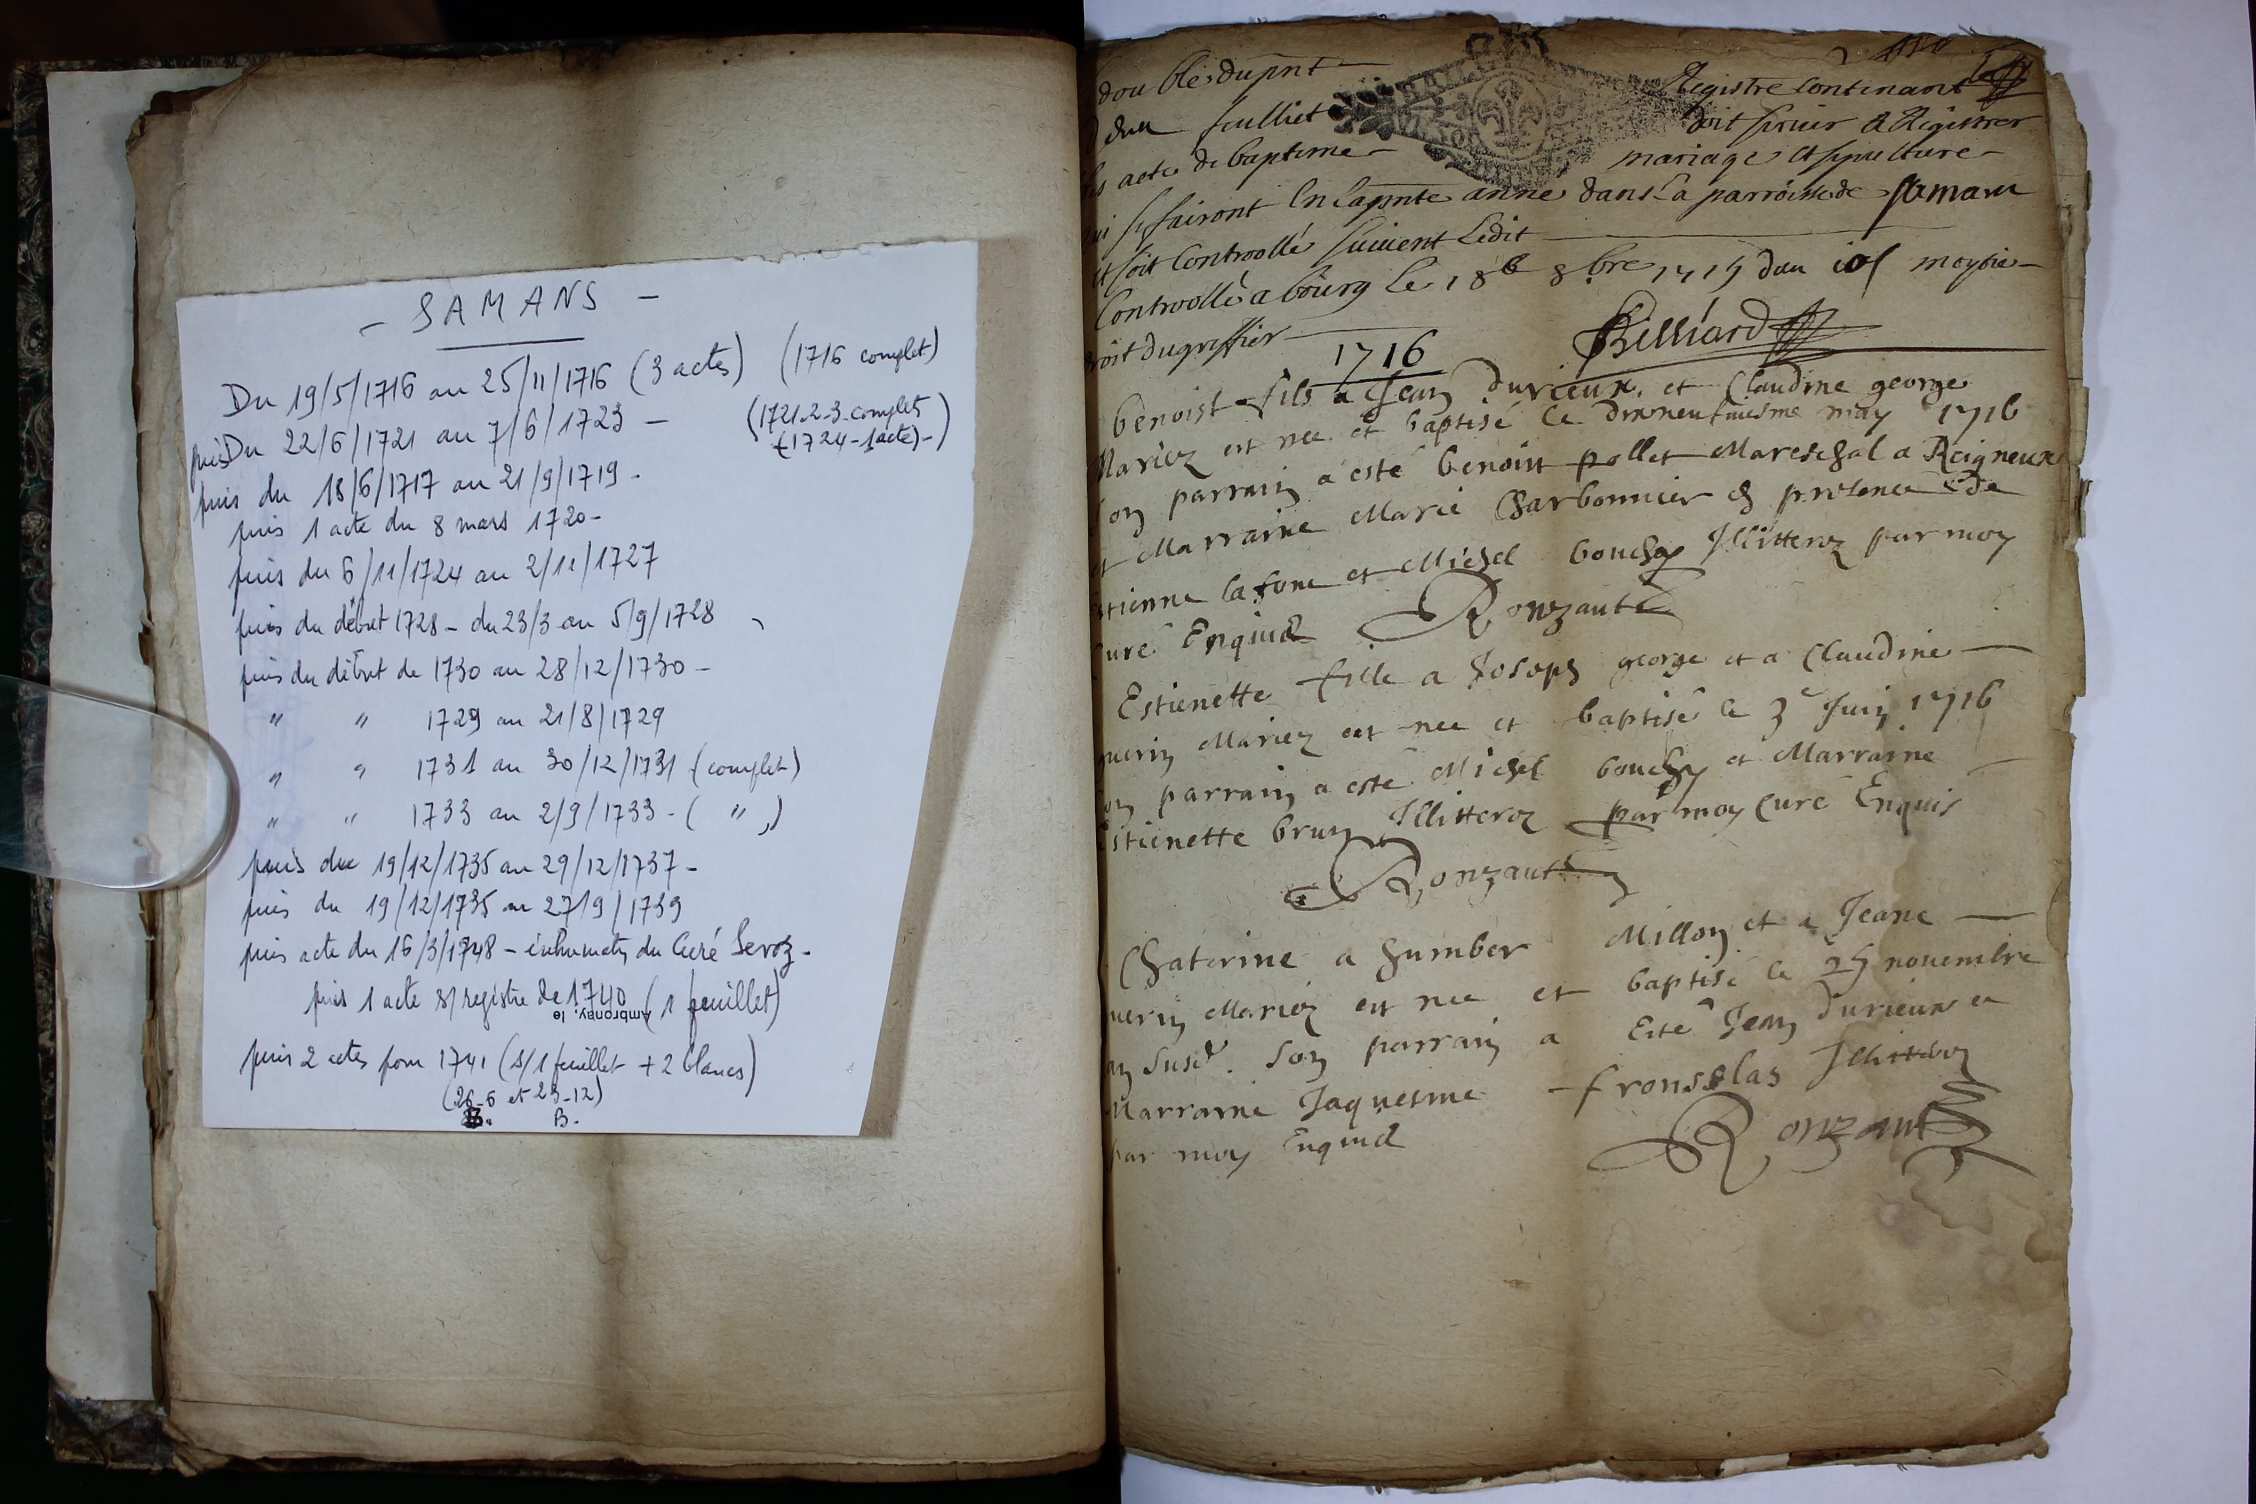 - SAMANS -
Du 19/5/1716 au 25/11/1716 (3 actes) (1716 complet)
puis Du 22/6/1721 au 7/6/1723 - (1721-2-3-complet
(1724-1acte)-)
puis du 18/6/1717 au 21/9/1719.
puis 1 acte du 8 mars 1720-
puis du 6/11/1724 au 2/11/1727
puis du début 1728 - du 23/3 au 5/9/1728
puis du début de 1730 au 28/12/1730 -
" " 1729 au 21/8/1729
" " 1731 au 30/12/1731 (complet)
" " 1733 au 2/9/1733 - ( " )
puis du 19/12/1735 au 29/12/1737 -
puis du 19/12/1735 au 27/9/1739
puis acte du 16/3/1748 - du Curé Seroz.
puis 1 acte s/ registre de 1740 (1 feuillet)
Ambronay, le
puis 2 actes pour 1741 (s/1 feuillet + 2 blancs)
(26-6 et 23-12)
B.
double du pnt Registre Contenant
feulliet doit servir A Registrer
acte de bapteme mariage et sepulture
se fairont En la pnte anné dans La parroisse de Samans
et soit Controollé suivent Ledit
Controollé a bourg Le 18e 8bre 1715 moytie
droit du greffier Billiard
1716
benoist fils a Jean durieux et Claudine george
Mariez est nee et baptisé le dixneufuiesme may 1716
son parrain a esté benoist pollet Mareschal a Reigneux
et Marraine Marie Charbonnier en presence de
estienne lafont et Michel bouchy Illitteroz par moy
Curé Enquis Ronzaut
Estienette fille a Joseph george et a Claudine
guerin Mariez est nee et baptisé le 3e Juin 1716
son parrain a esté Michel bouchy et Marraine
Estienette brun Illitteroz par moy Curé Enquis
Ronzaut
Chaterine a humber Millon et a Jeane
guerin Mariez est nee et baptisé le 25 novembre
an susd. son parrain a Esté Jean durieux et
Marraine Jaquesme Illitteroz
par moy Enquis Ronzaut